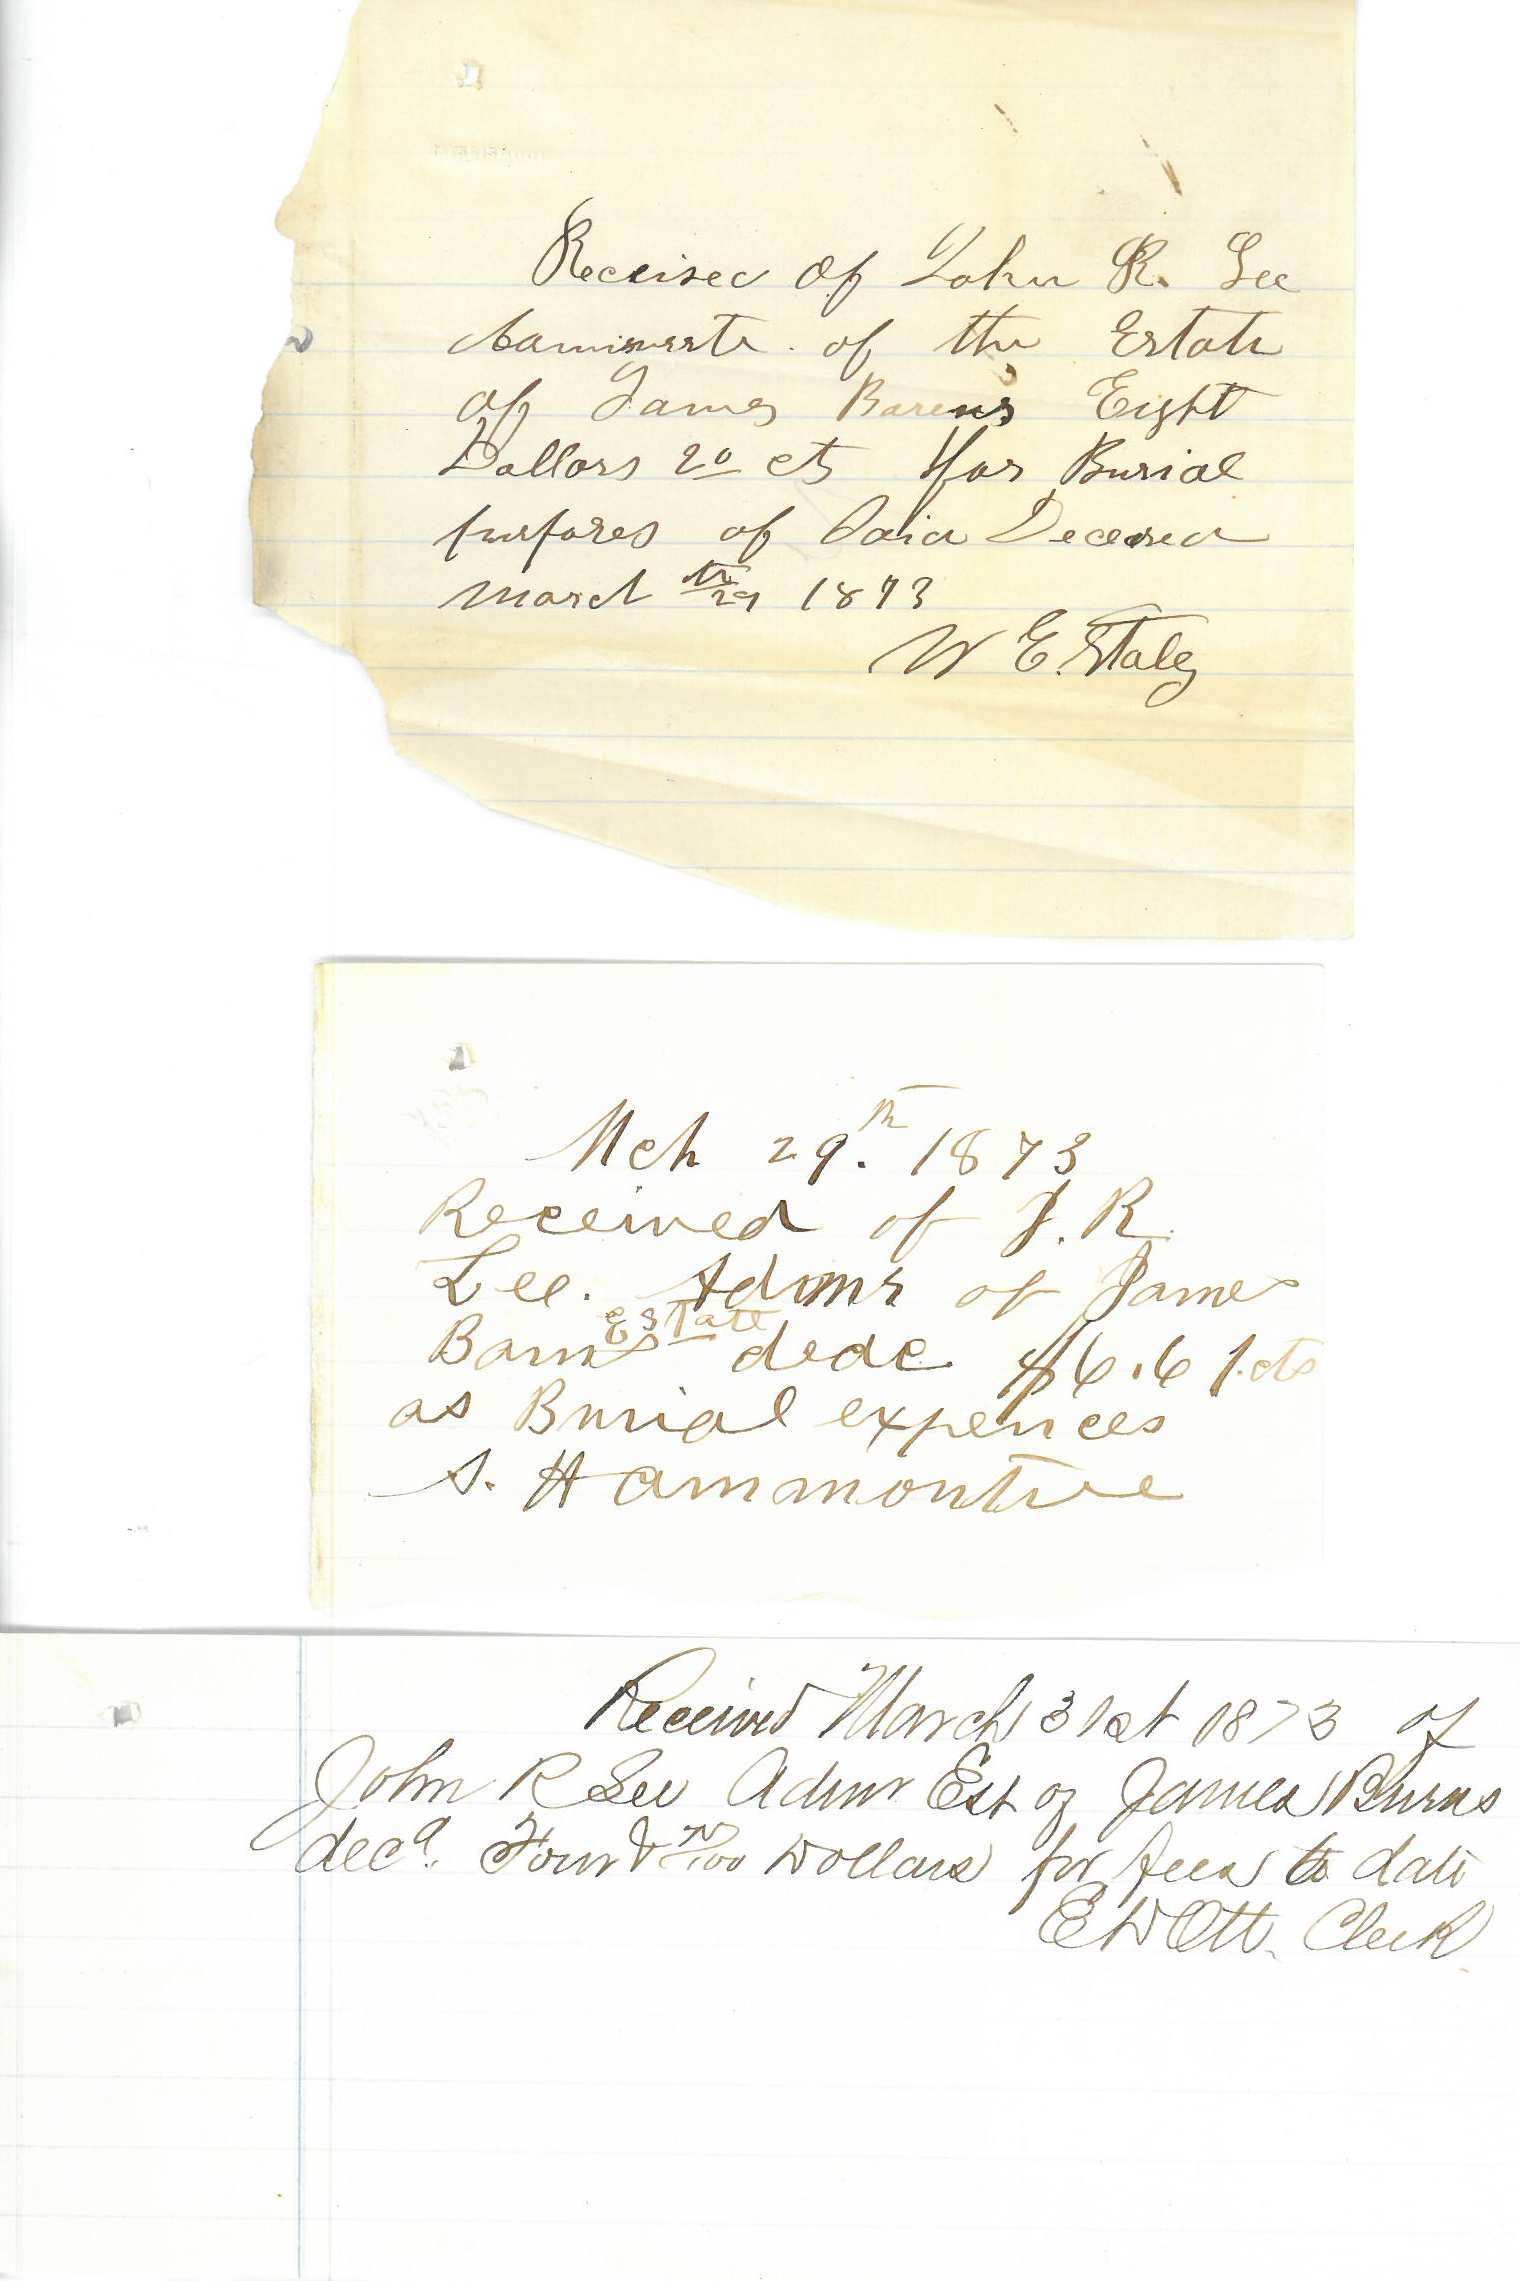 Received of John R. Lee
Administr. of the Estate
of James Barens Eight
Dollars 20 cts for Burial
purposes of Said Deceased
March 29th 1873
W E. Staley
Mch 29.th 1873
Received of J. R.
Lee. Admr of James
Barns estate dedc $6.61.cts
as Burial expences
S. Hammontree
Received March 31st 1873 of
John R Lee Admr Est of James Burns
decd. Four & no/100 Dollars for fees to date
E W Ott. Clerk